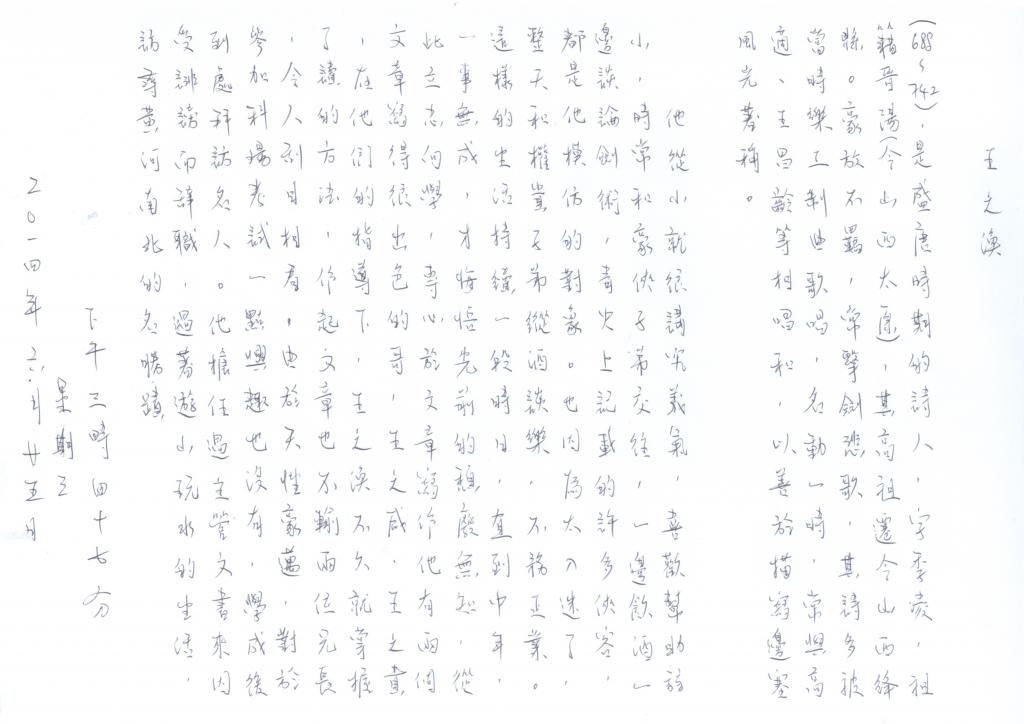 王之渙
(688~742),是盛唐時期的詩人,字季凌,祖
籍晉陽(今山西太原),其高祖遷今山西絳
縣。豪放不羈,常擊劍悲歌,其詩多被
當時樂工制曲歌唱,名動一時,常與高
適、王昌齡等相唱和,以善於描寫邊塞
風光著稱。
他從小就很講究義氣,喜歡幫助弱
小,時常和豪俠子弟交往,一邊飲酒一
邊談論劍術,青史上記載的許多俠客,
都是他模仿的對象。也因為太入迷了,
整天和權貴子弟縱酒談樂,不務正業。
這樣的生活持續一段時日,直到中年,
一事無成,才悔悟先前的頹廢無知,從
此立志向學,專心於文章寫作他有兩個
文章寫得很出色的哥王之咸,王之賁
,在他們的指導下,王之渙不久就掌握
了讀的方法,作起文章也不輸兩位兄長
,令人刮目相看,由於天性豪邁,對於
參加科場考試一點興趣也沒有,學成後
到處拜訪名人。他擔任過主管文書來因
受誹謗而辭職,過著遊山玩水的生活,
訪尋黃河南北的名勝蹟
下午三時四十七分
星期三
20一四年六月廿五日